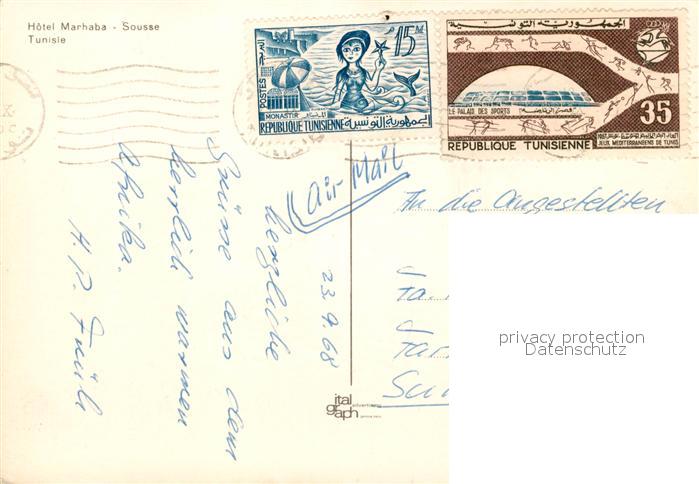 Hôtel Marhaba - Sousse
Tunisie
15 M
POSTES
MONASTIR المنستير
REPUBLIQUE TUNISIENNE الجمهورية التونسية
الجمهورية التونسية
LE PALAIS DES SPORTS قصر الرياضة
35
1967
JEUX MEDITERRANEENS DE TUNIS
REPUBLIQUE TUNISIENNE
Air Mail
23.9.68
herzliche
Grüsse aus dem
herrlich warmen
Afrika.
An die Angestellten
Fa.
ital
graph
advertising
privacy protection
Datenschutz